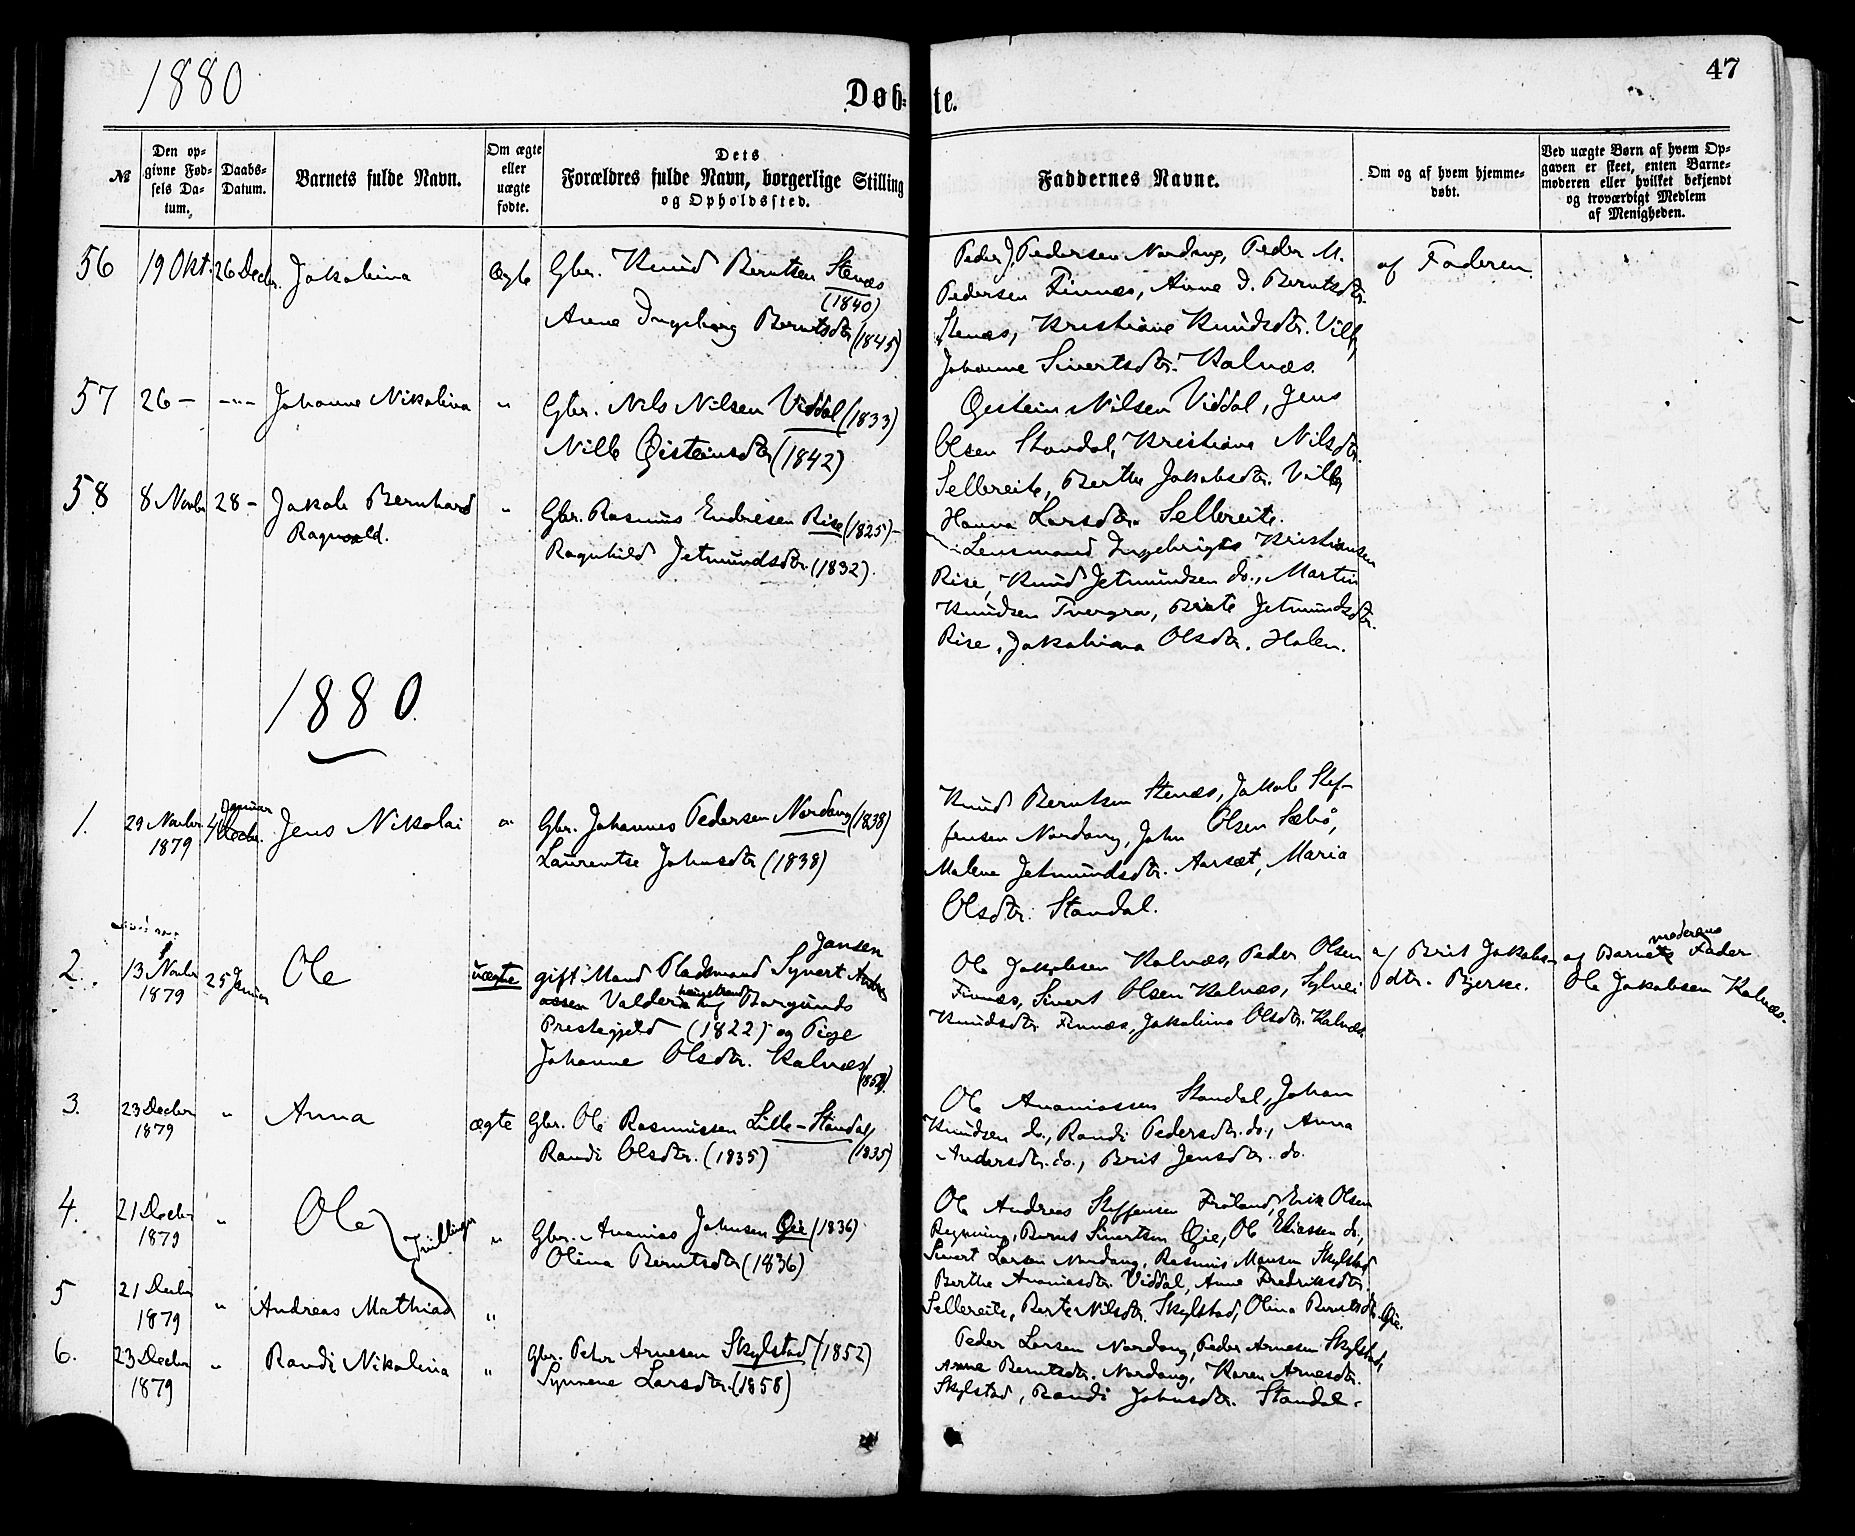 1880
47
Døbte.
№
Den opgivne Fødsels Datum.
Daabs-Datum.
Barnets fulde Navn.
Om ægte eller uægte fødte.
Dets Forældres fulde Navn, borgerlige Stilling og Opholdssted.
Faddernes Navne.
Om og af hvem hjemmedøbt.
Ved uægte Børn af hvem Opgaven er skeet, enten Barnemoderen eller hvilket bekjendt og troværdigt Medlem af Menigheden.
56 19 Okt. 26 Decbr. Jakobina Ægte Gbr. Knud Berntsen Stenæs
(1840)
Anne Ingeborg Berntsdtr (1845)
Peder J. Pedersen Nordang, Peder M.
Pedersen Finnæs, Anne I. Berntsdtr.
Stenæs, Kristiane Knudsdtr. Vill,
Johanne Sivertsdtr. Kalnæs.
af Faderen.
57 26 – –"– Johanne Nikolina " Gbr. Nils Nilsen Viddal (1833)
Nille Øisteinsdtr (1842)
Øistein Nilsen Viddal, Jens
Olsen Standal, Kristiane Nilsdtr.
Sellereite, Berthe Jakobsdtr.
Hanna Larsdtr. Sellereite.
58 8 Novbr 28 – Jakob Bernhard
Ragnvald.
" Gbr. Rasmus Endresen Rise (1825) –
Ragnhild Jetmundsdtr. (1832).
Lensmand Ingebrigt Kristiansen
Rise, Knud Jetmundsen do., Martin
Knudsen Tvergrov, Birte Jetmundsdtr.
Rise, Jakobina Olsdtr. Holen.
1880.
1. 29 Novbr
1879
4 Januar
Decbr.
Jens Nikolai " Gbr. Johannes Pedersen Nordang (1838)
Laurentse Johnsdtr (1838)
Knud Berntsen Stenæs, Jakob Stef-
fensen Nordang, John Olsen Sæbø,
Malene Jetmundsdtr. Aarsæt, Maria
Olsdtr. Standal.
2. 13 Novbr
1879
25 Januar
Ole uægte gift Mand Pladsmand Syvert
Jansen
Valder Borgunds
Prestegjeld (1822) og Pige
Johanne Olsdtr. Kalnæs
Ole Jakobsen Kalnæs, Peder Olsen
Finnæs, Sivert Olsen Kalnæs, Sylvei
Knudsdtr Finnæs, Jakobine Olsdtr. Kalnæs.
af Brit Jakobs-
dtr. Bjerke.
af Barnets moderens Fader
Ole Jakobsen Kalnæs.
3. 23 Decbr
1879
" Anna ægte Gbr. Ole Rasmussen Lille-Standal
(1835)
Randi Olsdtr. (1835)
Ole Ananiassen Standal, Johan
Knudsen do., Randi Pedersdtr. do., Anna
Andersdtr. do., Brit Jensdtr. do.
4. 21 Decbr
1879
" Ole
Tvillinger
" Gbr. Ananias Johnsen Øie (1836)
Olina Berntsdtr (1836)
Ole Andreas Steffensen Frøland, Erik Olsen
Bernt Sivertsen Øie, Ole Eliassen do.,
Sivert Larsen Nordang, Rasmus Monsen Skylstad
Berthe Ananiasdtr. Viddal, Anne Fredriksdtr.
Sellereite, Berte Nilsdtr. Skylstad, Olina Berntsdtr. Øie.
5 21 Decbr
1879
" Andreas Mathias "
6. 23 Decbr
1879
" Randi Nikolina " Gbr. Peter Arnesen Skylstad (1852)
Synneve Larsdtr. (1858)
Peder Larsen Nordang, Peder Arnesen Skylstad,
Anna Berntsdtr. Nordang, Karen Arnesdtr.
Skylstad, Randi Johnsdtr. Standal.